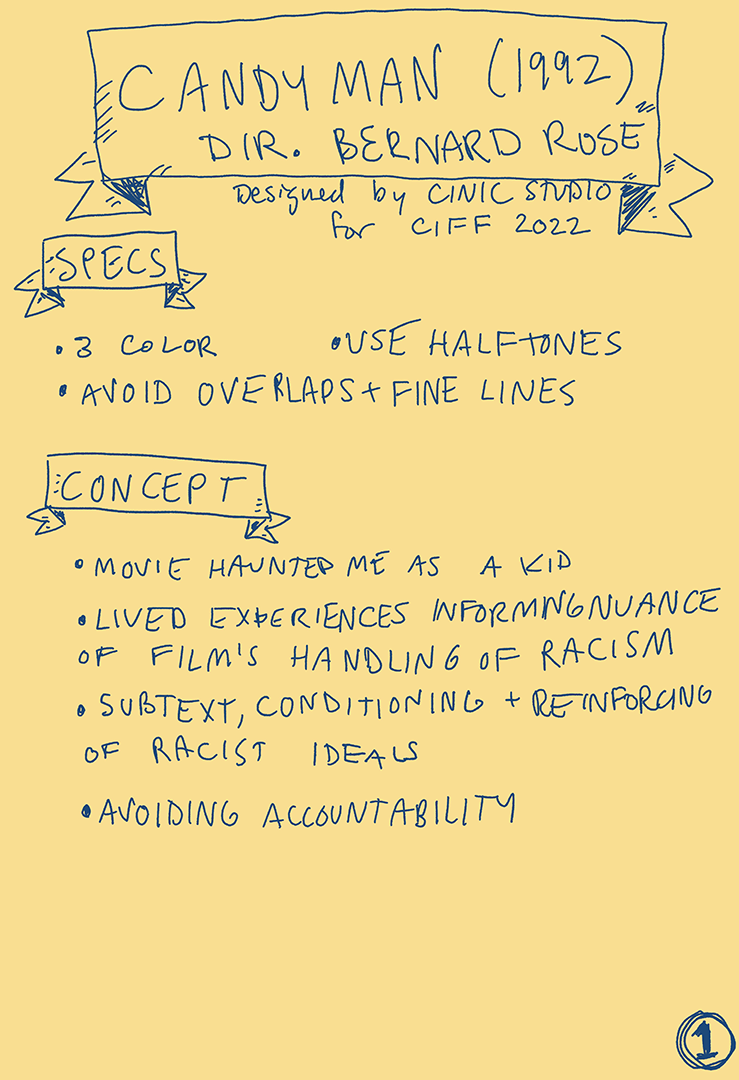 CANDYMAN (1992)
DIR. BERNARD ROSE
Designed by CINIC STUDIO
for CIFF 2022
SPECS
• 3 COLOR
• USE HALFTONES
• AVOID OVERLAPS + FINE LINES
CONCEPT
• MOVIE HAUNTED ME AS A KID
• LIVED EXPERIENCES INFORMING NUANCE
OF FILM'S HANDLING OF RACISM
• SUBTEXT, CONDITIONING + REINFORCING
OF RACIST IDEALS
• AVOIDING ACCOUNTABILITY
1